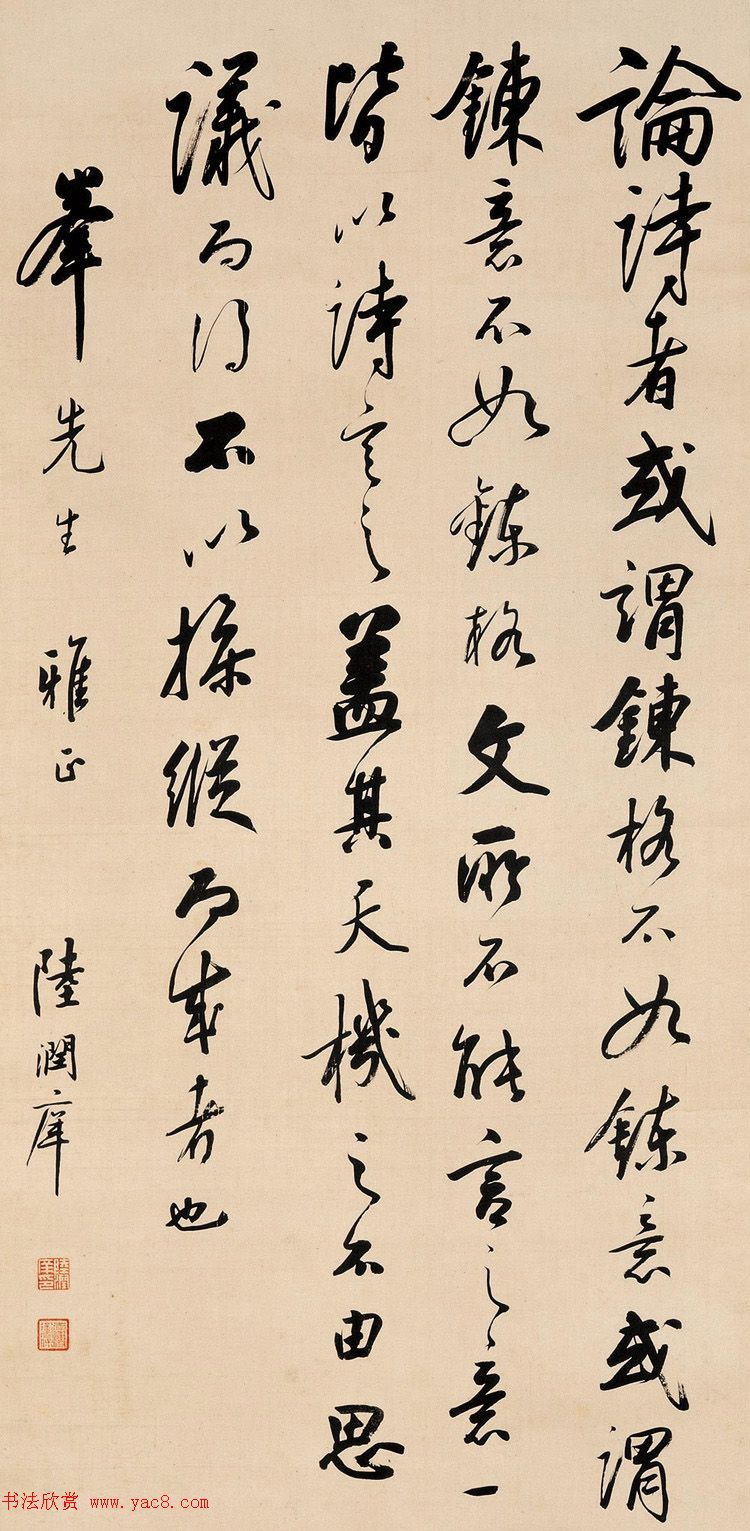 論詩者或謂鍊格不如鍊意或謂
鍊意不如鍊格文所不能言之意一
皆以詩言之蓋其天機之不由思
議而得不以操縱而成者也
峯先生 雅正 陸潤庠
书法欣赏 www.yac8.com